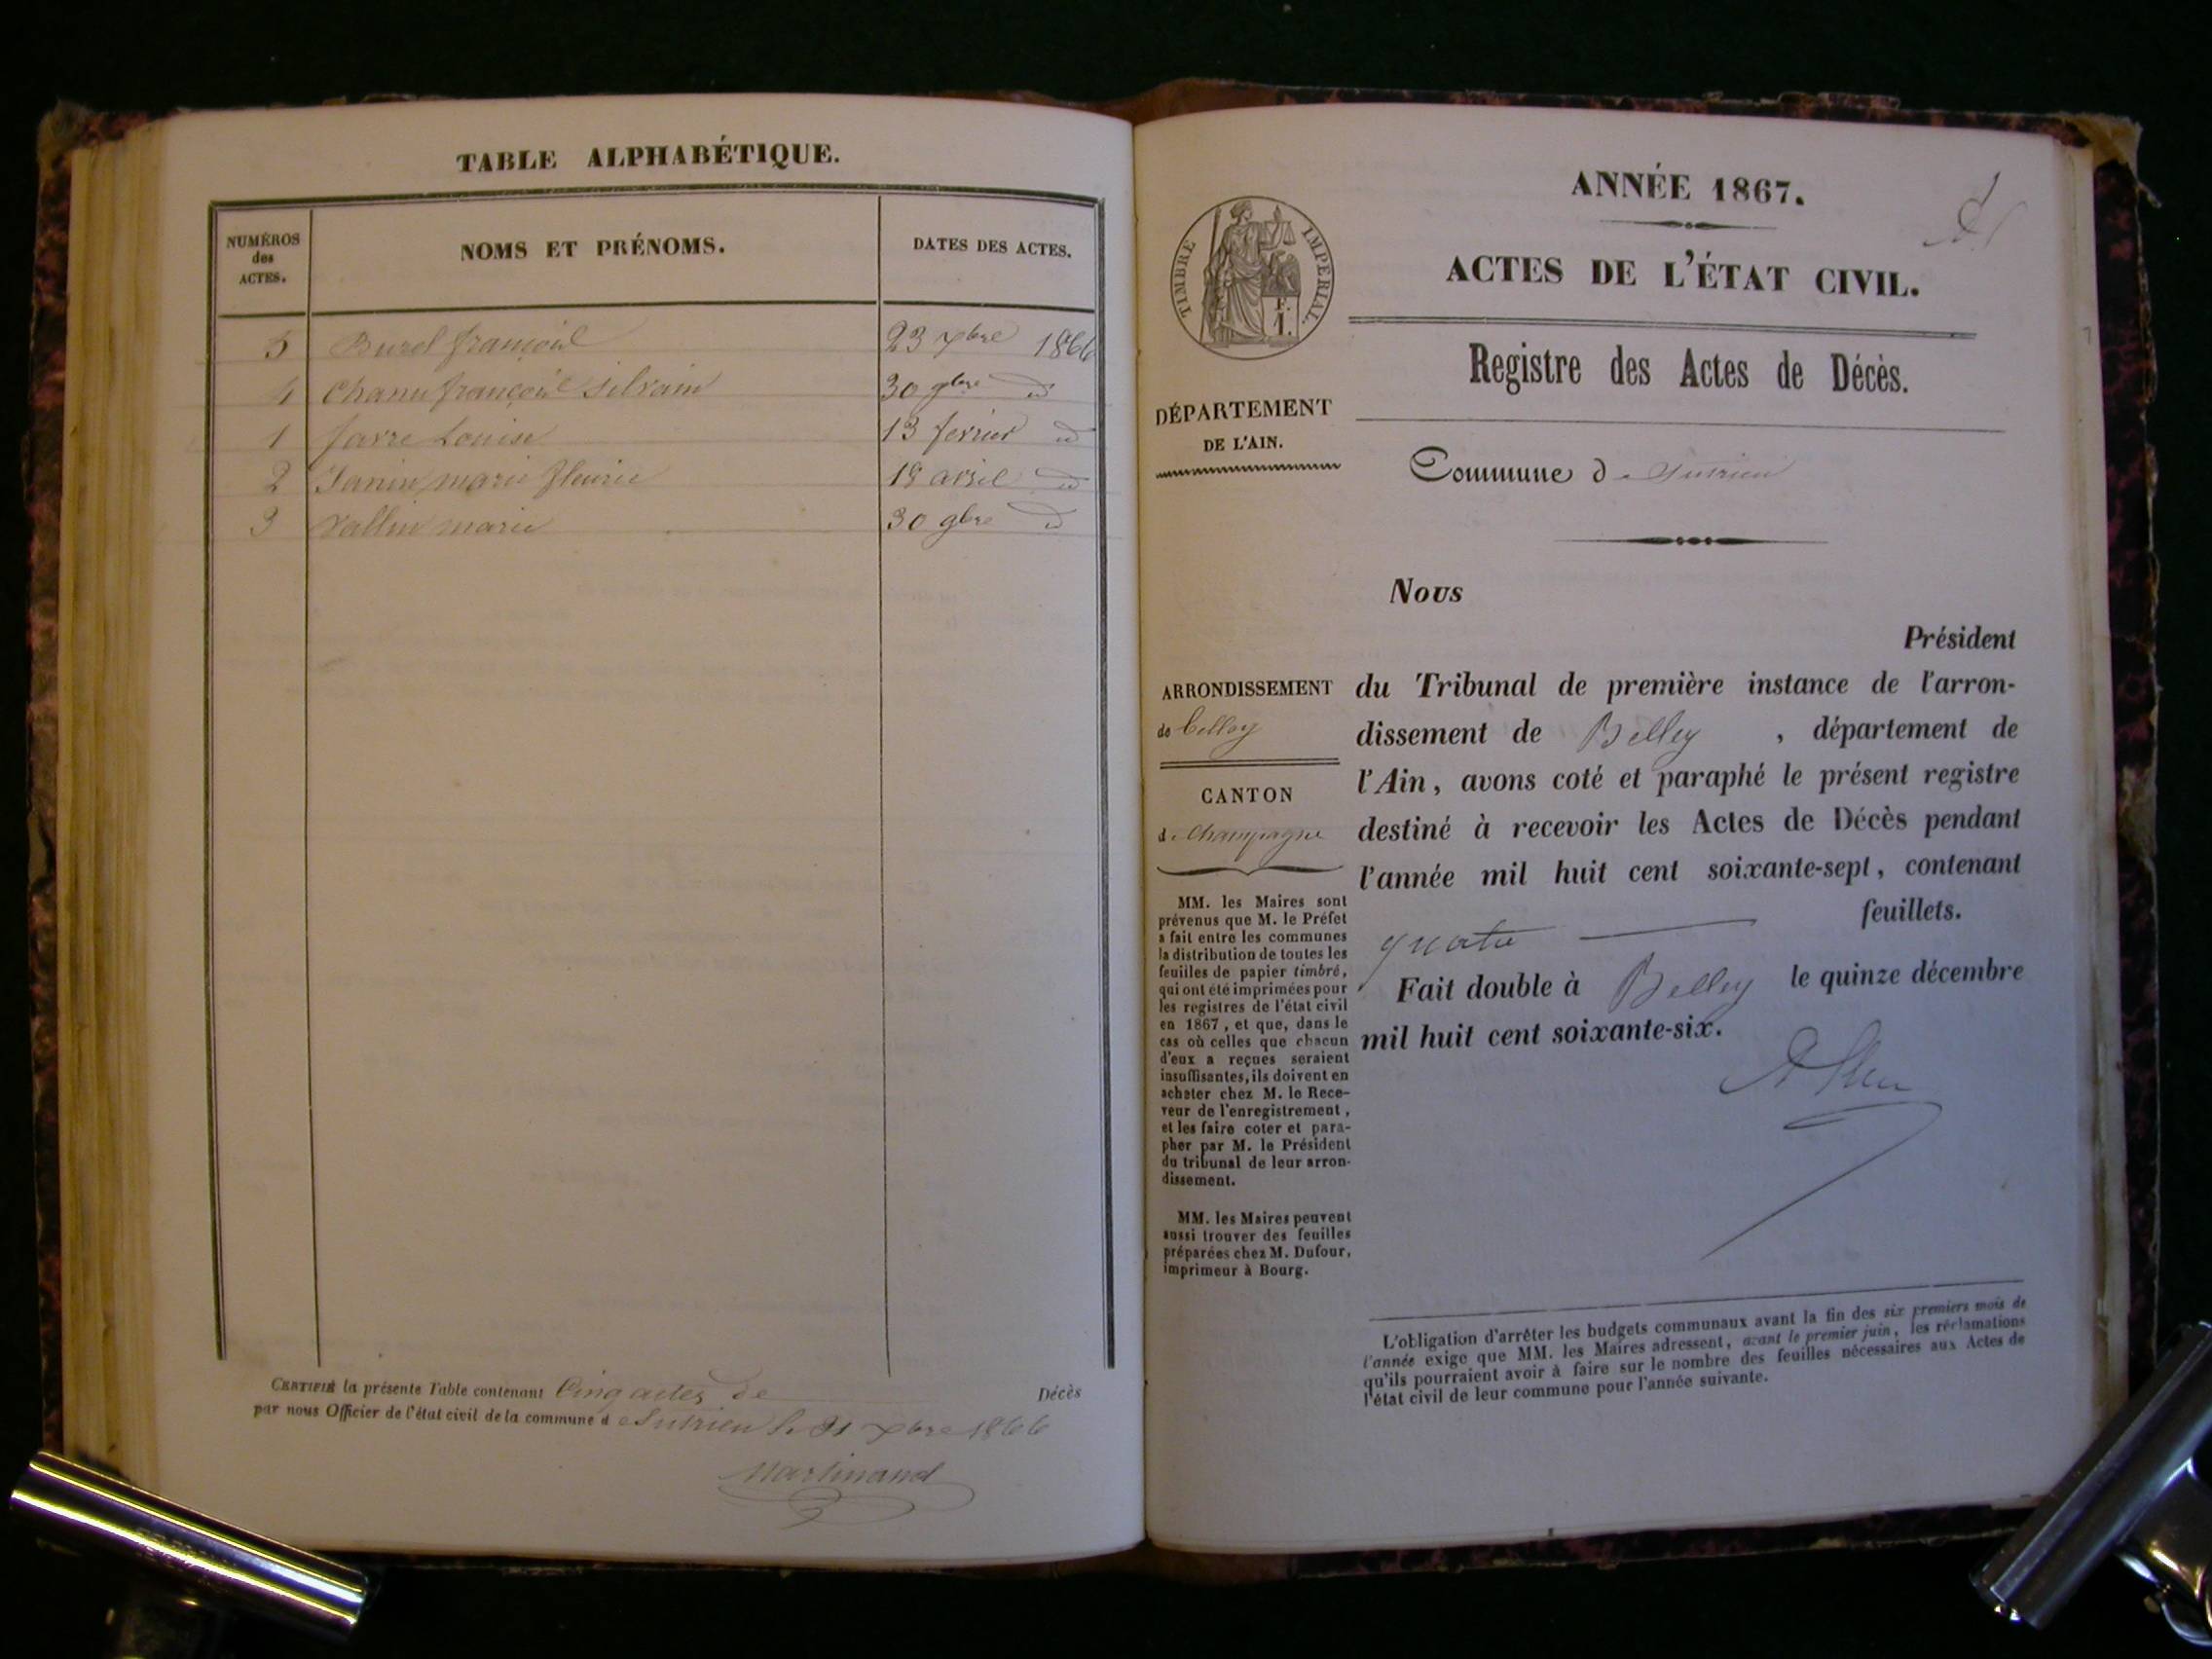 TABLE ALPHABÉTIQUE.
NUMÉROS
des
ACTES.
NOMS ET PRÉNOMS.
DATES DES ACTES.
5 Burel françois 23 xbre 1866
4 Chanu françois Silvain 30 gbre d
1 Jarre Louise 13 fevrier d
2 Janin marie fleurie 19 avril d
3 Vallin marie 30 gbre d
CERTIFIÉ la présente Table contenant Cinq actes de Décès
par nous Officier de l'état civil de la commune d e Sutrieu le 31 xbre 1866
Martinand
ANNÉE 1867.
ACTES DE L'ÉTAT CIVIL.
TIMBRE IMPÉRIAL.
F.
1.
Registre des Actes de Décès.
DÉPARTEMENT
DE L'AIN.
Commune d e Sutrieu
Nous
Président
ARRONDISSEMENT
de belley
CANTON
de Champagne
du Tribunal de première instance de l'arron-
dissement de Belley , département de
l'Ain, avons coté et paraphé le présent registre
destiné à recevoir les Actes de Décès pendant
l'année mil huit cent soixante-sept, contenant
quatre feuillets.
Fait double à Belley le quinze décembre
mil huit cent soixante-six.
MM. les Maires sont
prévenus que M. le Préfet
a fait entre les communes
la distribution de toutes les
feuilles de papier timbré,
qui ont été imprimées pour
les registres de l'état civil
en 1867, et que, dans le
cas où celles que chacun
d'eux a reçues seraient
insuffisantes, ils doivent en
acheter chez M. le Rece-
veur de l'enregistrement,
et les faire coter et para-
pher par M. le Président
du tribunal de leur arron-
dissement.
MM. les Maires peuvent
aussi trouver des feuilles
préparées chez M. Dufour,
imprimeur à Bourg.
L'obligation d'arrêter les budgets communaux avant la fin des six premiers mois de
l'année exige que MM. les Maires adressent, avant le premier juin, les réclamations
qu'ils pourraient avoir à faire sur le nombre des feuilles nécessaires aux Actes de
l'état civil de leur commune pour l'année suivante.